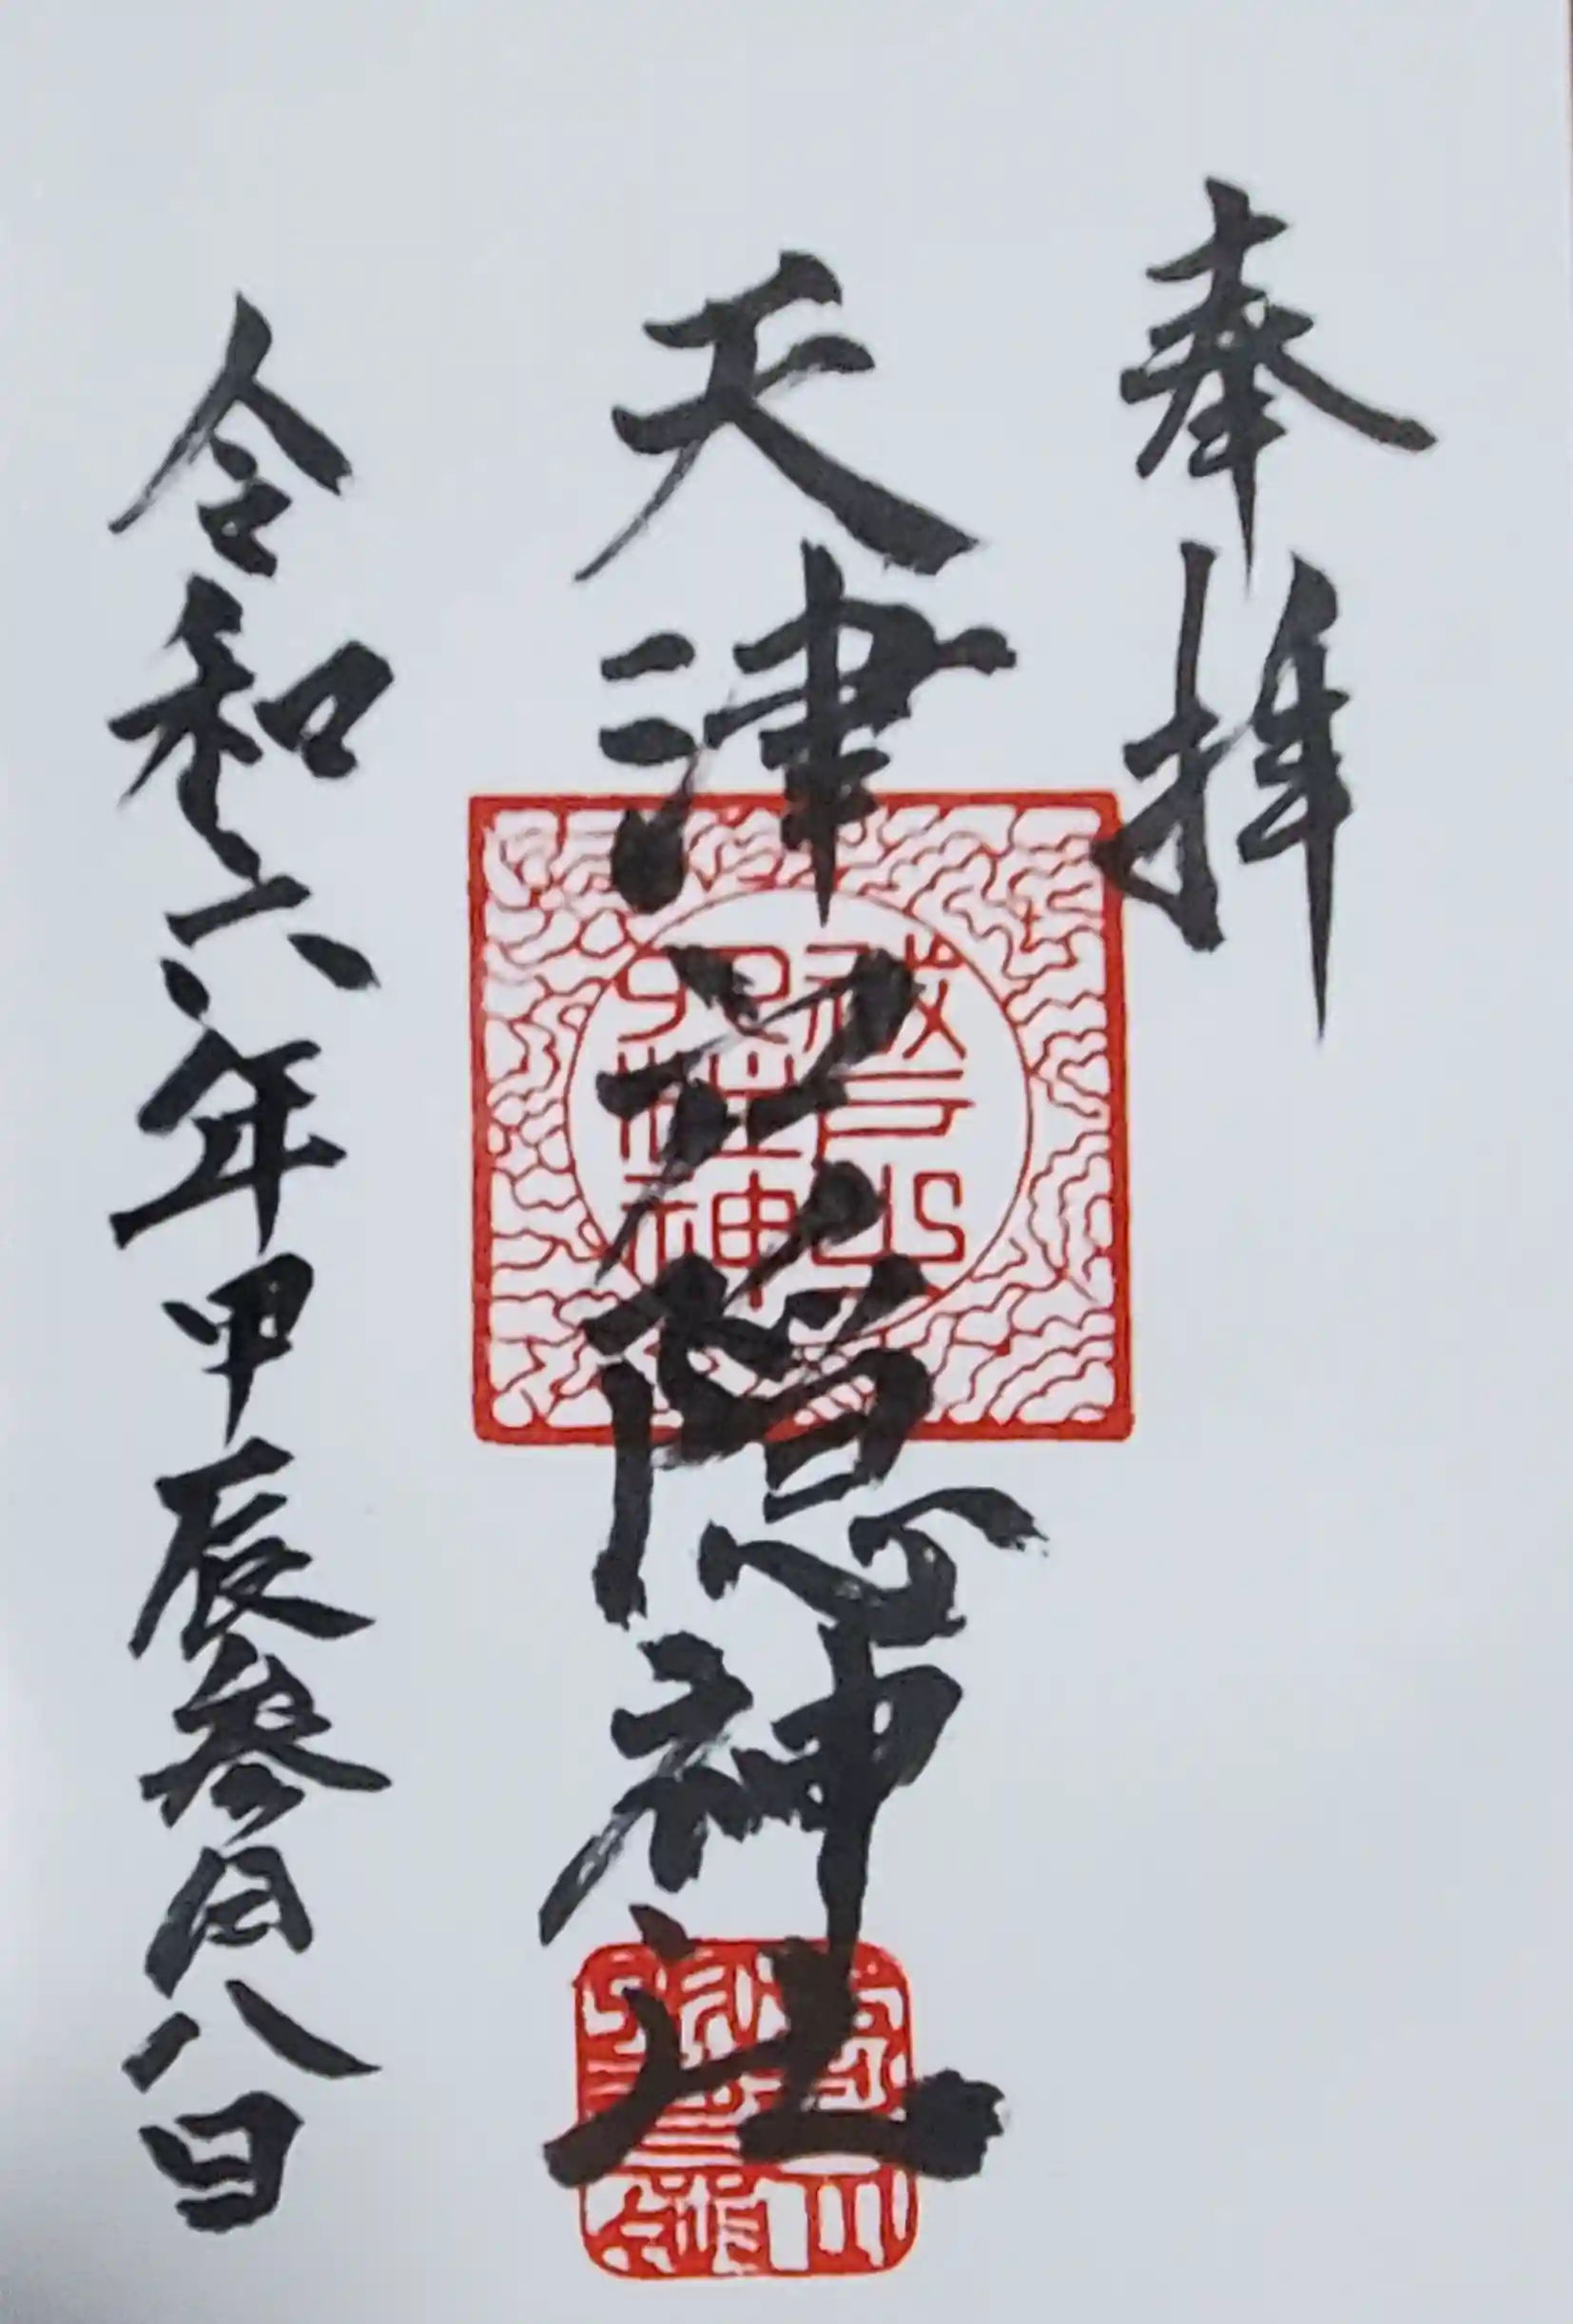 奉拝
天津戸隠神社
令和六年甲辰参月八日